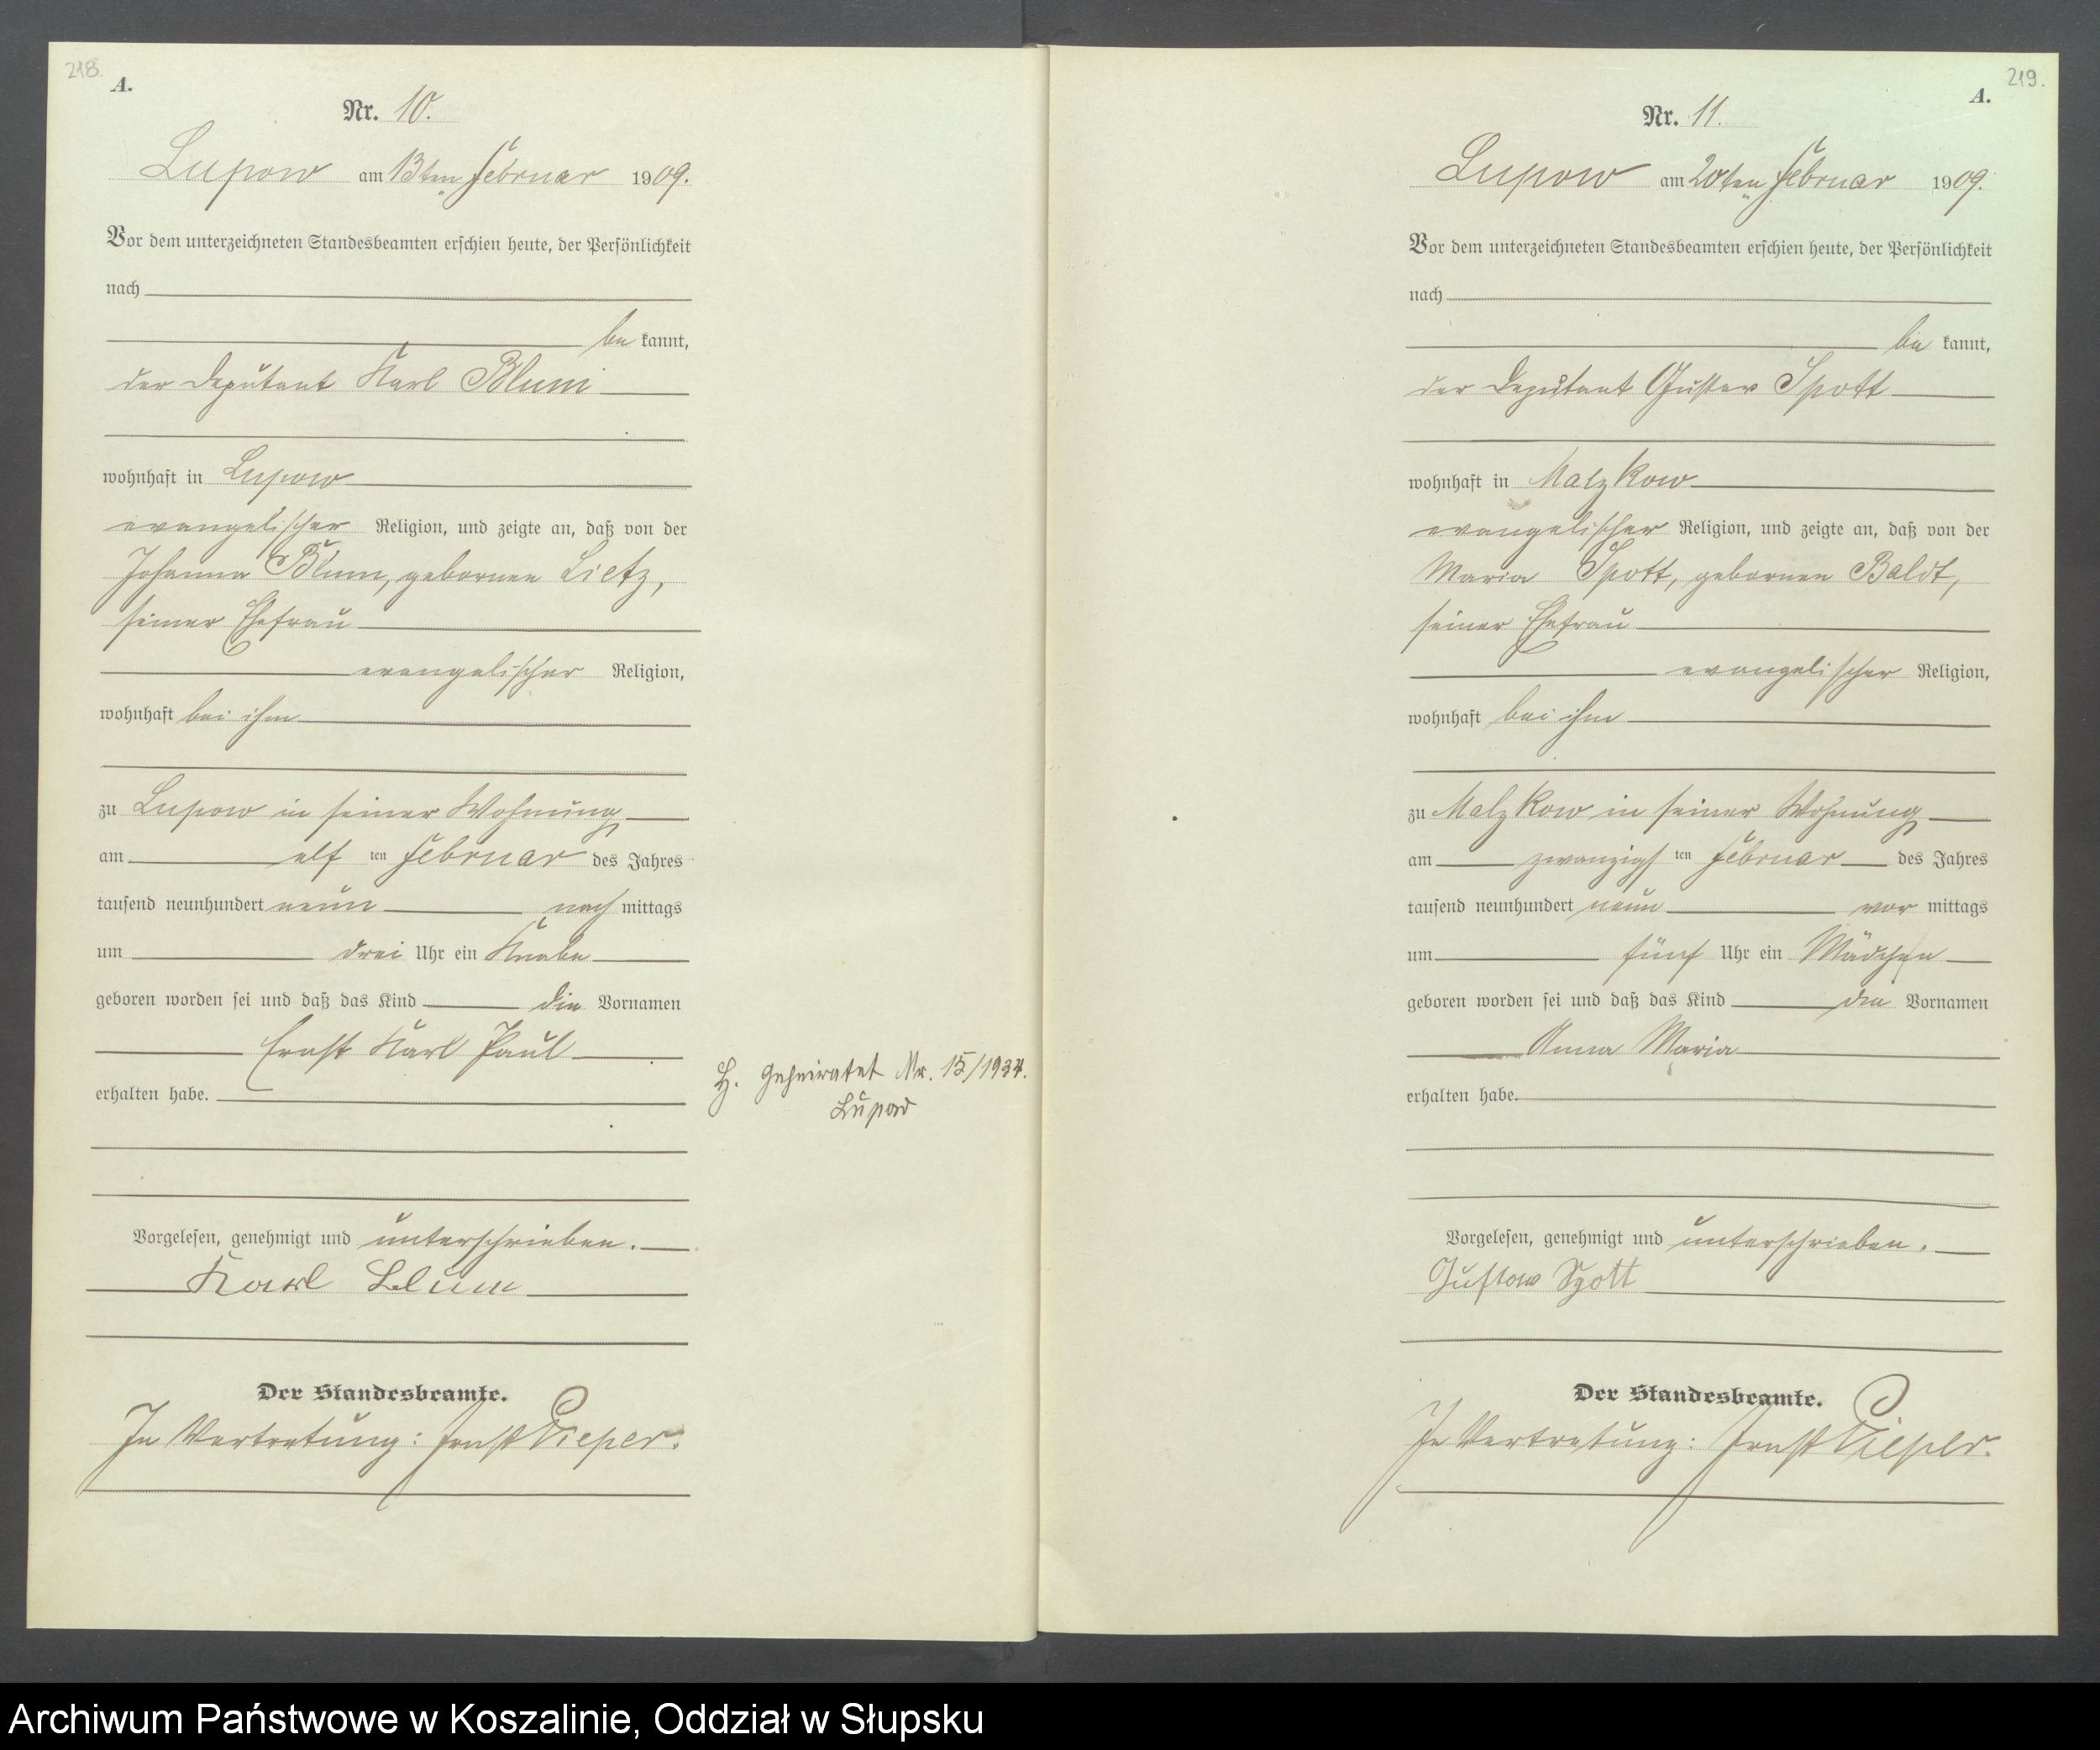 218.
A.
Nr. 10.
Lupow am 13ten Februar 1909.
Vor dem unterzeichneten Standesbeamten erschien heute, der Persönlichkeit
nach
be kannt,
der Deputant Karl Blum
wohnhaft in Lupow
evangelischer Religion, und zeigte an, daß von der
Johanna Blum, geborenen Lietz,
seiner Ehefrau
evangelischer Religion,
wohnhaft bei ihm
zu Lupow in seiner Wohnung
am elf ten Februar des Jahres
tausend neunhundert neun nach mittags
um drei Uhr ein Knabe
geboren worden sei und daß das Kind die Vornamen
Ernst Karl Paul
erhalten habe.
H. Geheiratet Nr. 15/1934.
Lupow
Vorgelesen, genehmigt und unterschrieben.
Karl Blum
Der Standesbeamte.
In Vertretung: Ernst Pieper.
219.
A.
Nr. 11.
Lupow am 20ten Februar 1909.
Vor dem unterzeichneten Standesbeamten erschien heute, der Persönlichkeit
nach
be kannt,
der Deputant Gustav Spott
wohnhaft in Malzkow
evangelischer Religion, und zeigte an, daß von der
Maria Spott, geborenen Baldt,
seiner Ehefrau
evangelischer Religion,
wohnhaft bei ihm
zu Malzkow in seiner Wohnung
am zwanzigs ten Februar des Jahres
tausend neunhundert neun vor mittags
um fünf Uhr ein Mädchen
geboren worden sei und daß das Kind die Vornamen
Anna Maria
erhalten habe.
Vorgelesen, genehmigt und unterschrieben.
Gustav Spott
Der Standesbeamte.
In Vertretung: Ernst Pieper.
Archiwum Państwowe w Koszalinie, Oddział w Słupsku